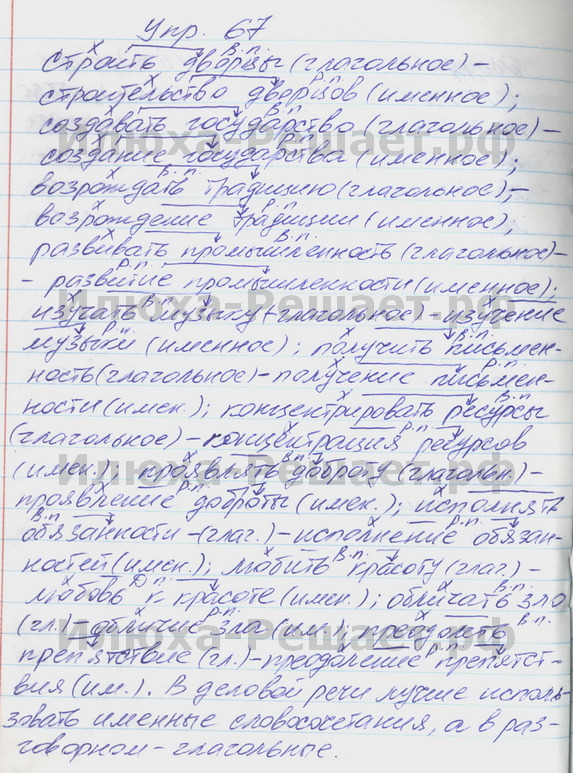 Упр. 67
В.п.
строить дворцы (глагольное) -
Р.п.
строительство дворцов (именное);
В.п.
создавать государство (глагольное) -
Р.п.
создание государства (именное);
В.п.
возрождать традицию (глагольное), -
Р.п.
возрождение традиции (именное);
В.п.
развивать промышленность (глагольное) -
Р.п.
- развитие промышленности (именное);
В.п.
изучать музыку (глагольное) - изучение
Р.п. В.п.
музыки (именное); получить письмен-
Р.п.
ность (глагольное) - получение письмен-
В.п.
ности (имен.); концентрировать ресурсы
Р.п.
(глагольное) - концентрация ресурсов
В.п.
(имен.); проявлять доброту (глагольн) -
Р.п.
проявление доброты (имен.); исполнять
В.п. Р.п.
обязанности - (глаг.) - исполнение обязан-
В.п.
ностей (имен.); любить красоту (глаг.) -
Д.п. В.п.
любовь к красоте (имен.); обличать зло
Р.п. В.п.
(гл.) - обличие зла (им.); преодолеть
Р.п.
препятствие (гл.) - преодоление препятст-
вия (им.). В деловой речи лучше исполь-
зовать именные словосочетания, а в раз-
говорном - глагольные.
Илюха-Решает.рф
Илюха-Решает.рф
Илюха-Решает.рф
Илюха-Решает.рф